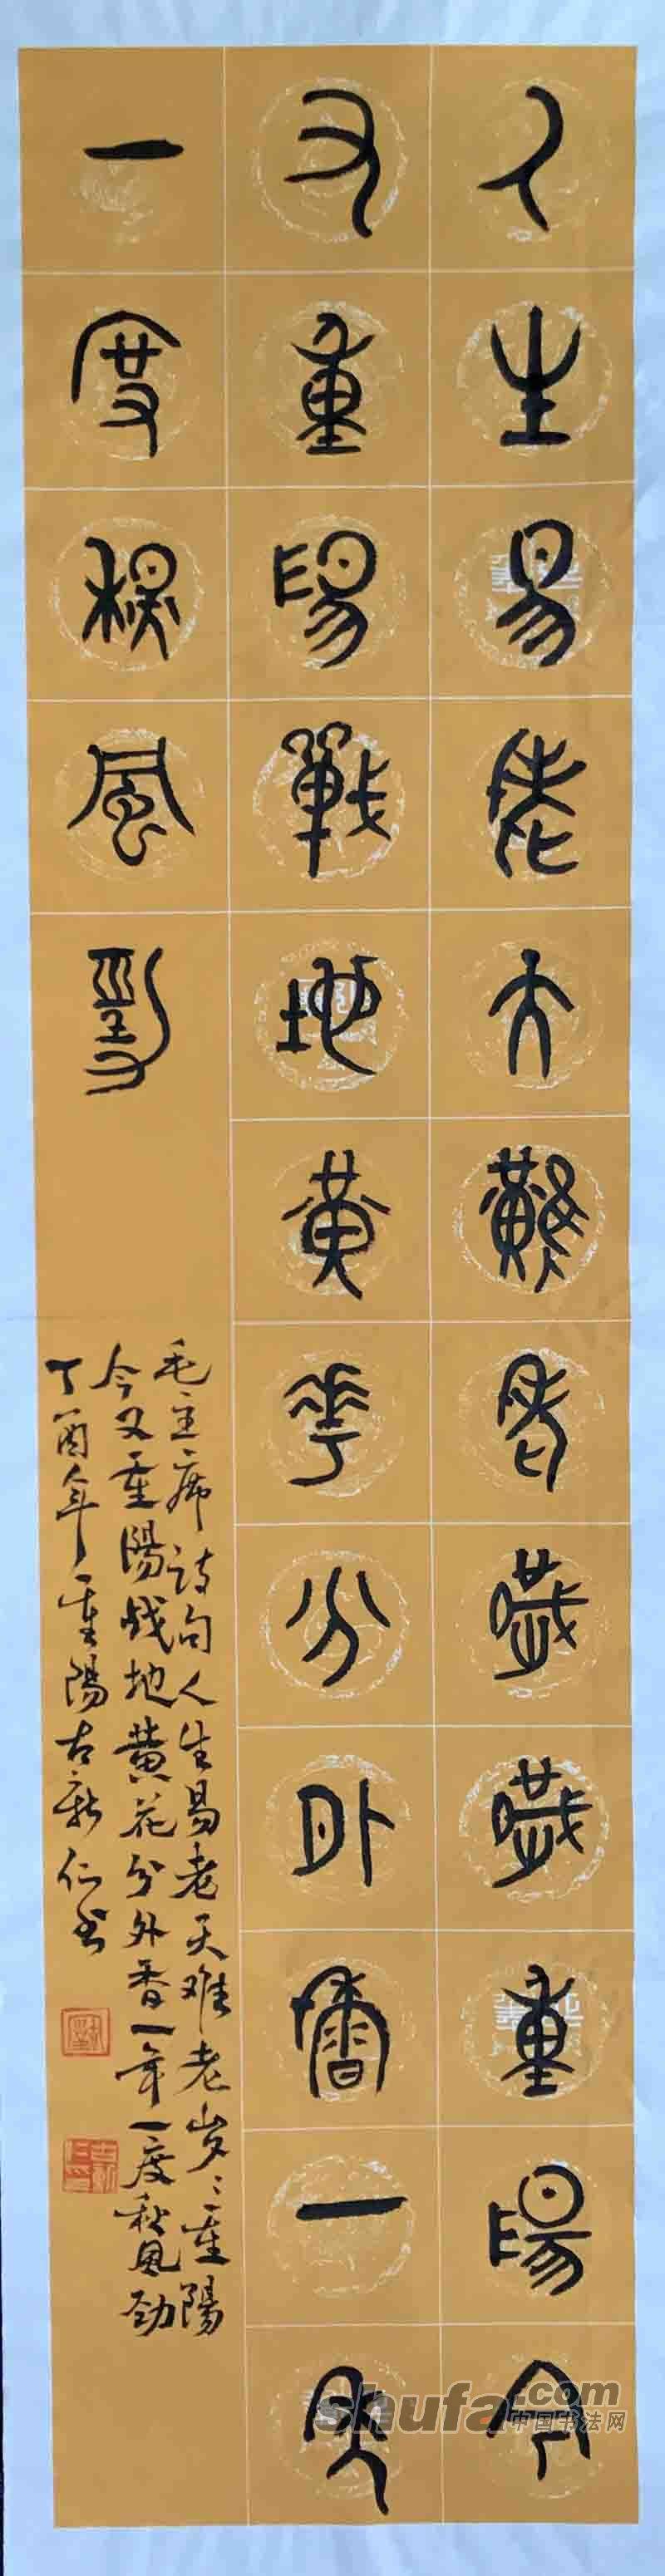 人生易老天難老歲歲重陽今
又重陽戰地黃花分外香一年
一度秋風勁
毛主席詩句人生易老天难老岁〻重陽
今又重陽战地黄花分外香一年一度秋风劲
丁酉年重陽古新仁书
shufa.com
中国书法网